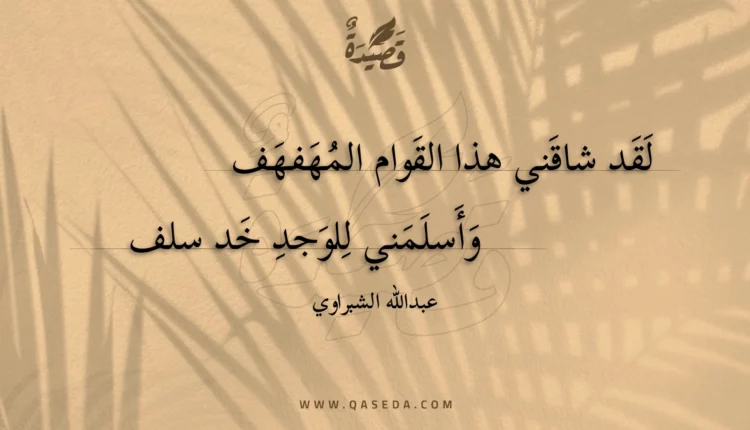 قَصِيْدَةٌ
لَقَد شاقَني هذا القَوام المُهَفهَف
وَأَسلَمَني لِلوَجدِ خَد سلف
عبدالله الشبراوي
WWW.QASEDA.COM